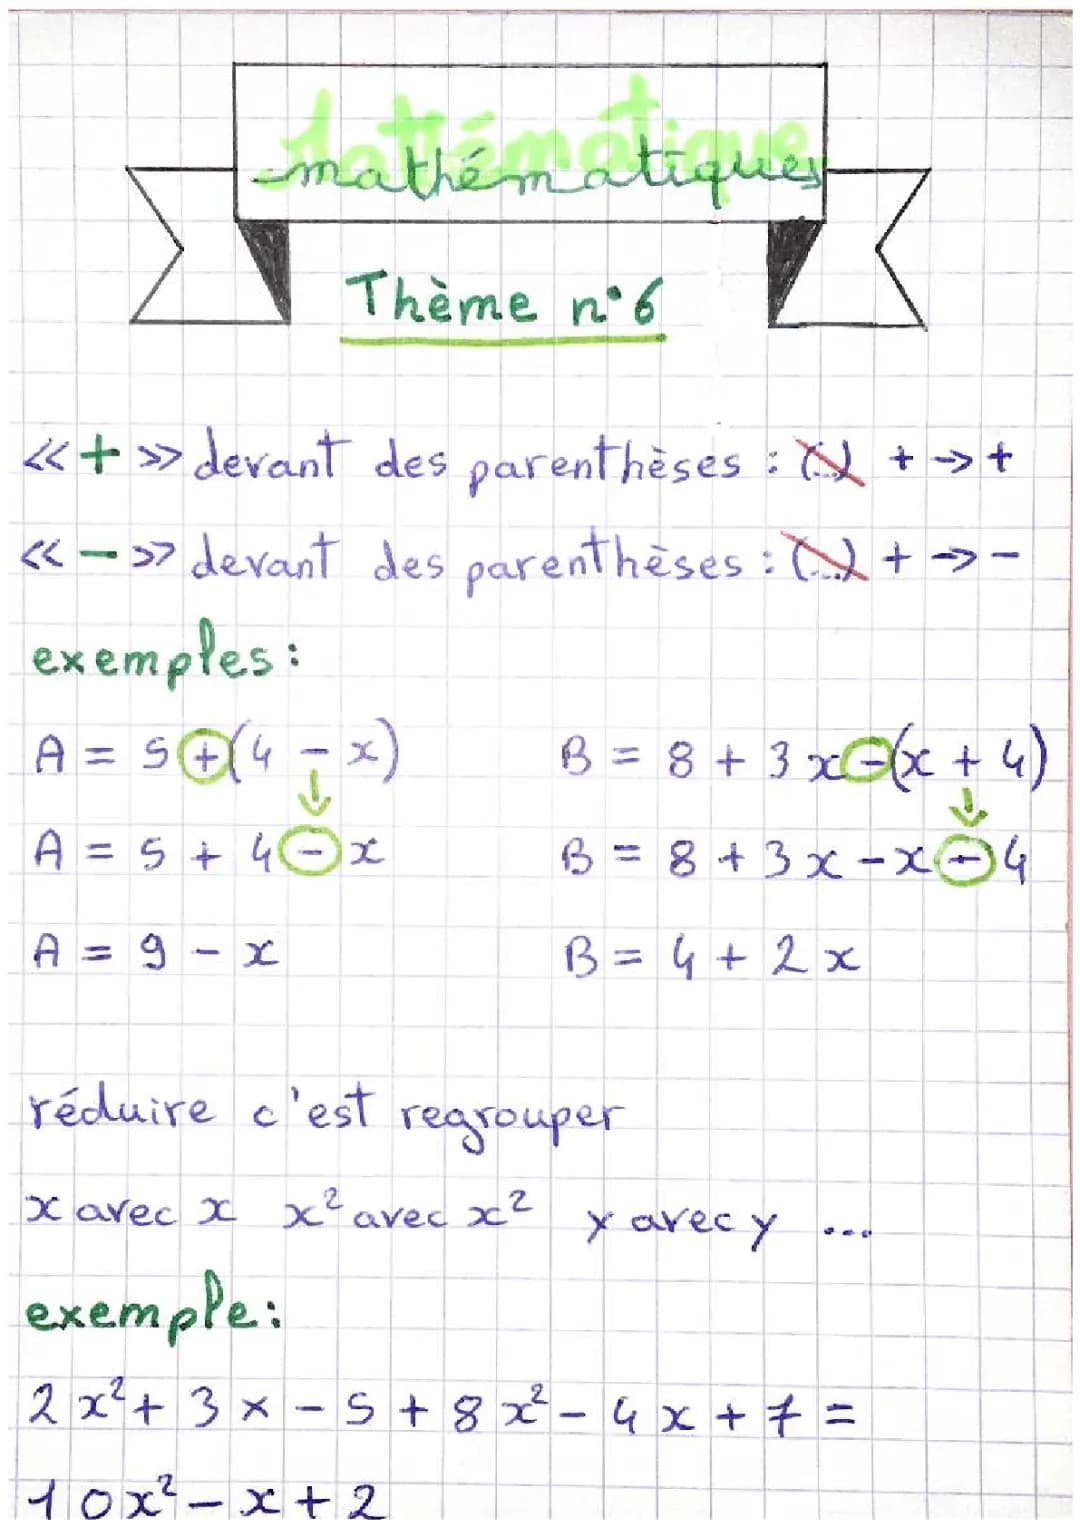 Mathématique
mathématiques
Thème n°6
<<+>> devant des parenthèses : (...) + -> +
<<->> devant des parenthèses : (...) + -> -
exemples :
A = 5 + (4 - x)
B = 8 + 3x - (x + 4)
A = 5 + 4 - x
B = 8 + 3x - x - 4
A = 9 - x
B = 4 + 2x
réduire c'est regrouper
x avec x x² avec x² y avec y ...
exemple :
2x² + 3x - 5 + 8x² - 4x + 7 =
10x² - x + 2